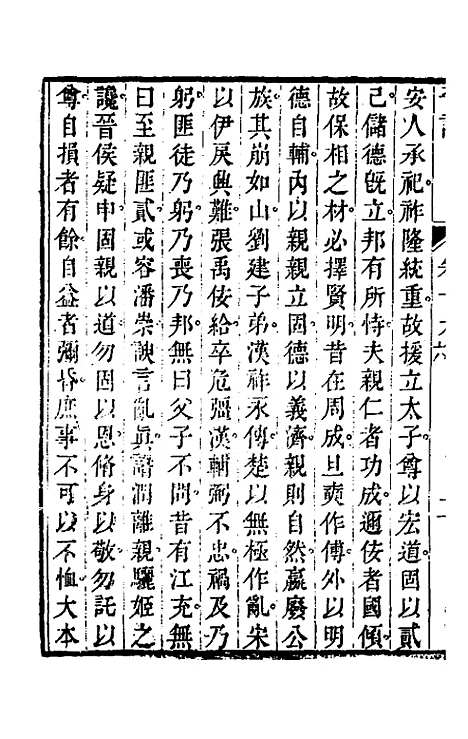 安人承祀祚隆統重。故援立太子。尊以宏道。固以貳
己。儲德旣立。邦有所恃。夫親仁者功成。邇佞者國傾。
故保相之材。必擇賢明。昔在周成。旦奭作傅。外以明
德自輔。內以親親立固。德以義濟。親則自然。嬴廢公
族。其崩如山。劉建子弟。漢祚永傳。楚以無極作亂。宋
以伊戾興難。張禹佞給。卒危彊漢。輔弼不忠。禍及乃
躬。匪徒乃躬。乃喪乃邦。無曰父子不間。昔有江充。無
曰至親匪貳。或容潘崇。諛言亂眞。譖潤離親。驪姬之
讒。晉侯疑申。固親以道。勿固以恩。脩身以敬。勿託以
尊。自損者有餘。自益者彌昏。庶事不可以不恤。大本